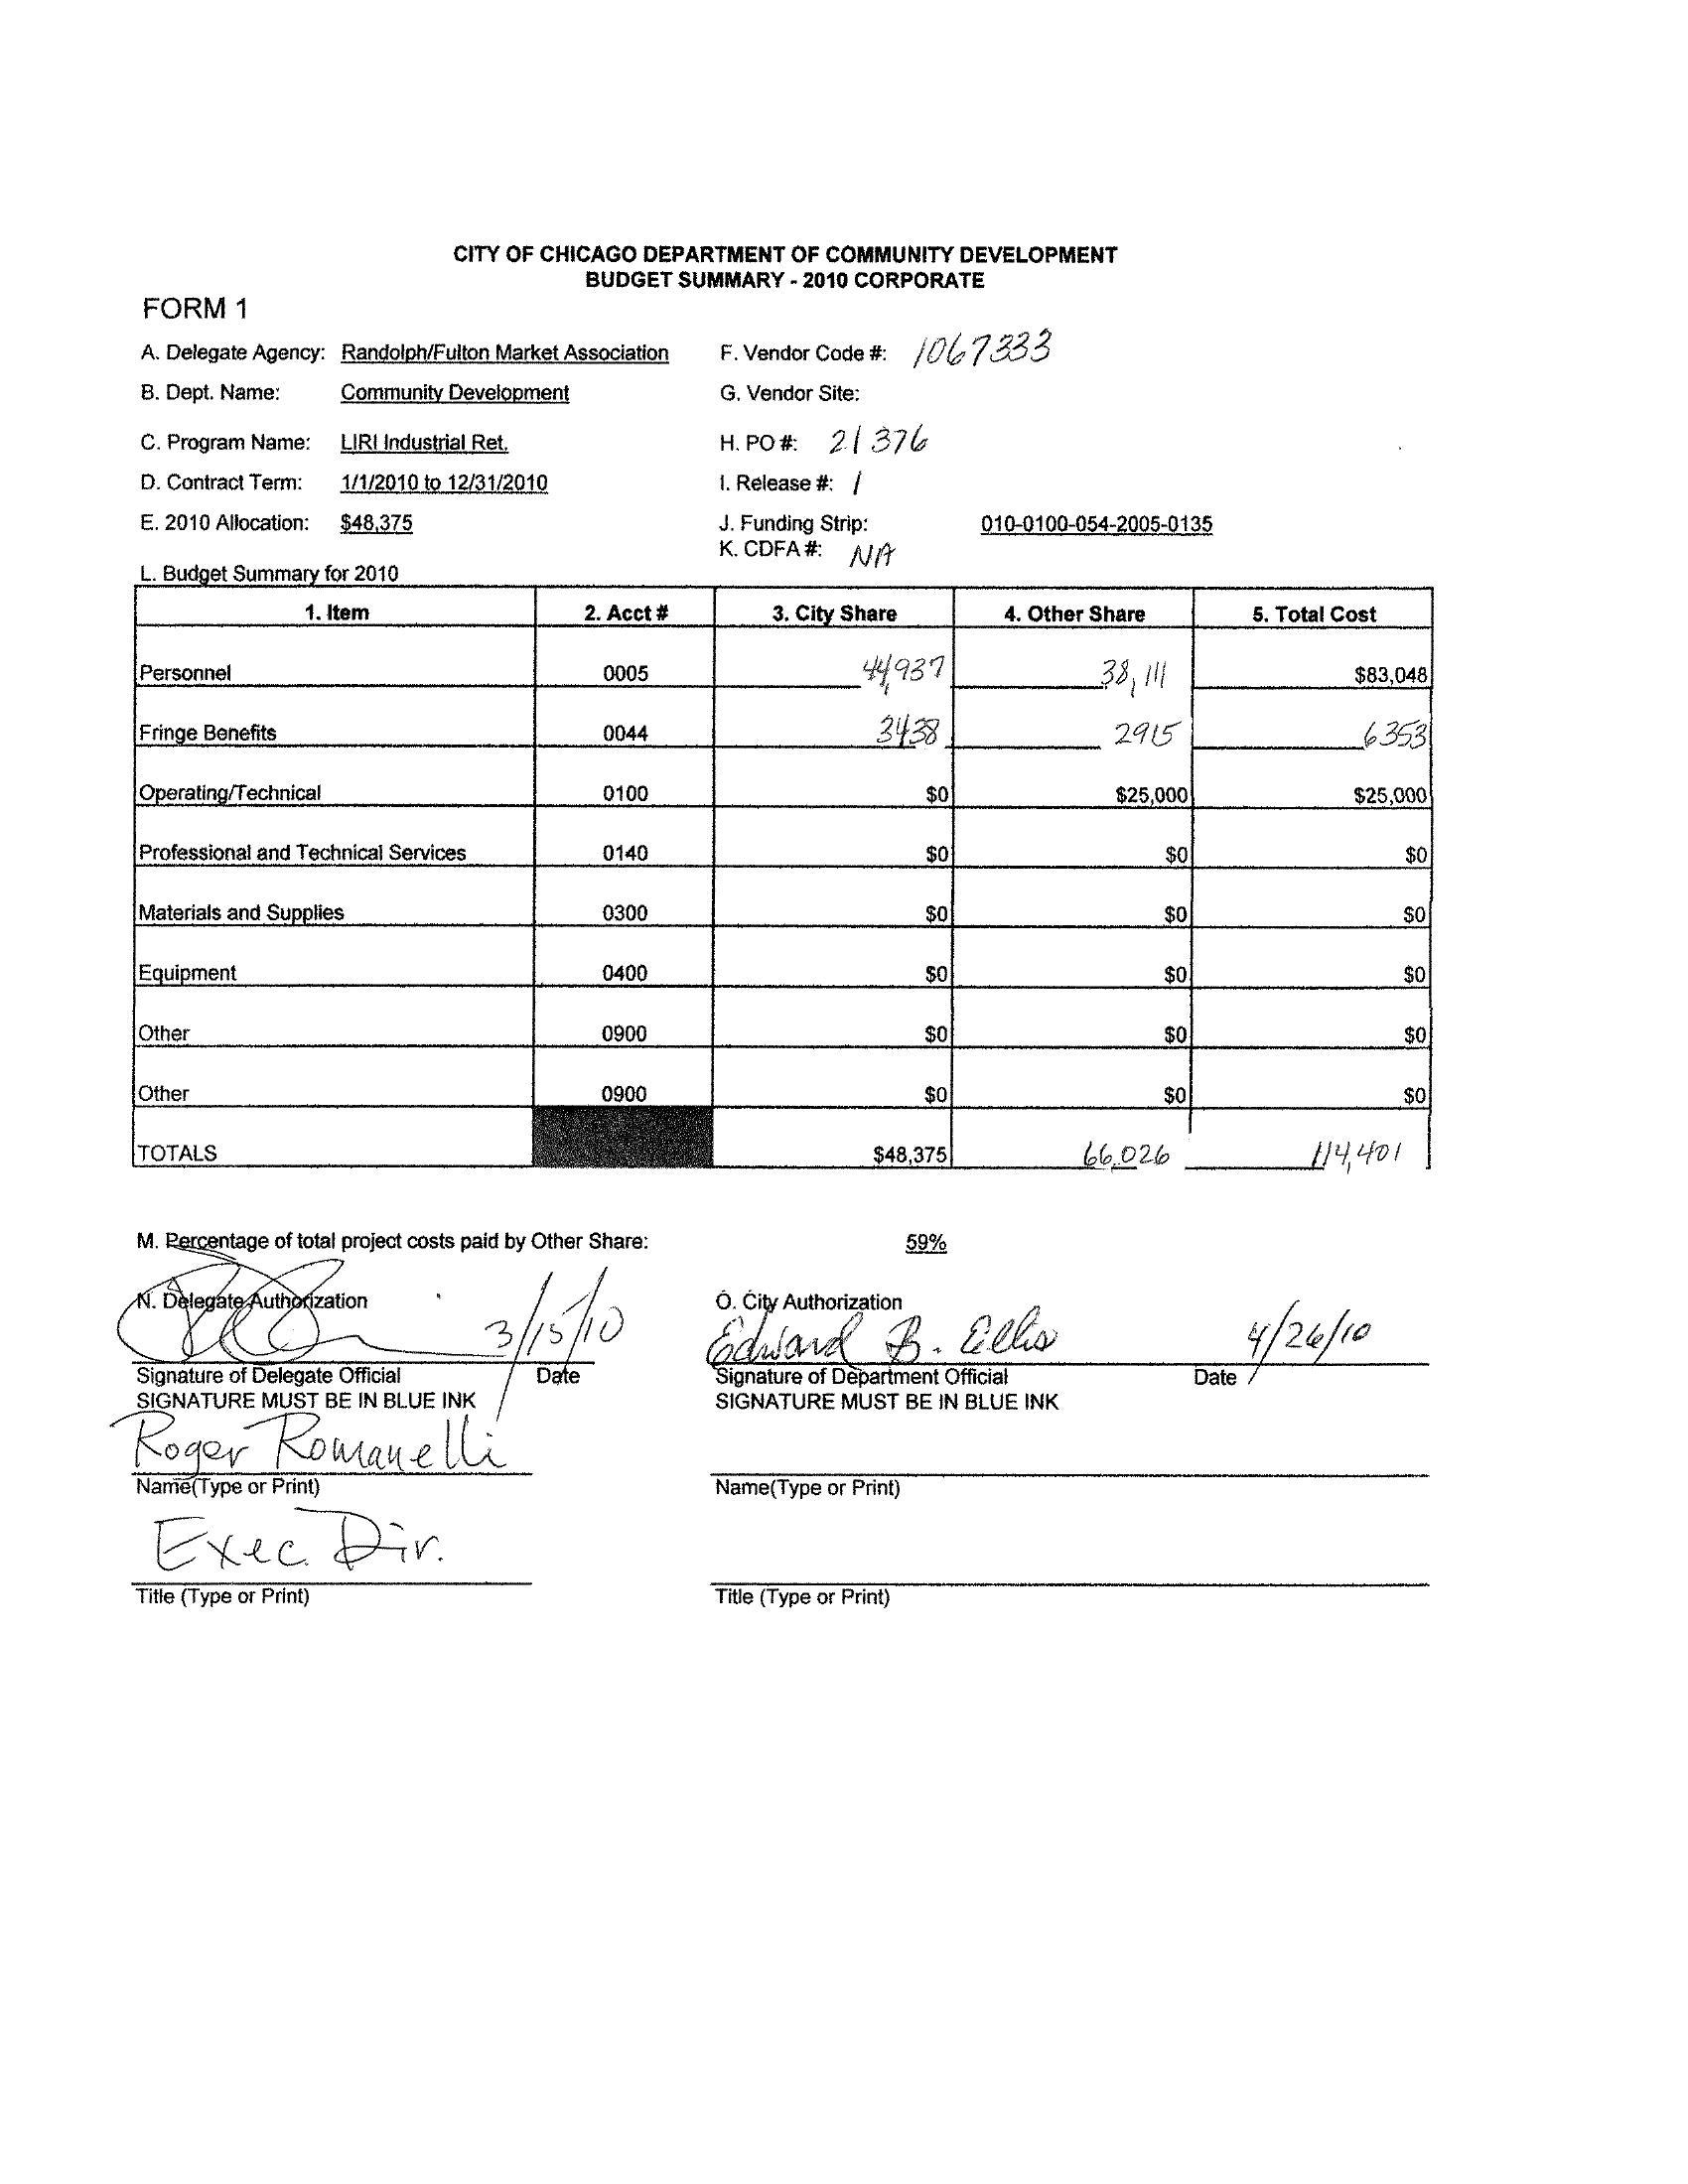 CITY OF CHICAGO DEPARTMENT OF COMMUNITY DEVELOPMENT
BUDGET SUMMARY - 2010 CORPORATE
FORM 1
A. Delegate Agency: Randolph/Fulton Market Association F. Vendor Code #: 1067333
B. Dept. Name: Community Development G. Vendor Site:
C. Program Name: LIRI Industrial Ret. H. PO #: 21376
D. Contract Term: 1/1/2010 to 12/31/2010 I. Release #: 1
E. 2010 Allocation: $48,375 J. Funding Strip: 010-0100-054-2005-0135
K. CDFA #: NA
L. Budget Summary for 2010
1. Item 2. Acct # 3. City Share 4. Other Share 5. Total Cost
Personnel 0005 44,937 38,111 $83,048
Fringe Benefits 0044 3438 2915 6353
Operating/Technical 0100 $0 $25,000 $25,000
Professional and Technical Services 0140 $0 $0 $0
Materials and Supplies 0300 $0 $0 $0
Equipment 0400 $0 $0 $0
Other 0900 $0 $0 $0
Other 0900 $0 $0 $0
TOTALS $48,375 66,026 114,401
M. Percentage of total project costs paid by Other Share: 59%
N. Delegate Authorization O. City Authorization
3/15/10 Edward B. Ellis 4/26/10
Signature of Delegate Official Date Signature of Department Official Date
SIGNATURE MUST BE IN BLUE INK SIGNATURE MUST BE IN BLUE INK
Roger Romanelli
Name(Type or Print) Name(Type or Print)
Exec. Dir.
Title (Type or Print) Title (Type or Print)